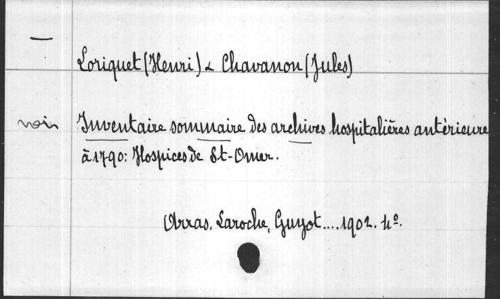 Loriquet (Henri) & Chavanon (Jules)
voir Inventaire sommaire des archives hospitalières antérieures
à 1790: Hospices de St-Omer.
Arras, Laroche, Guyot....1902. 4º.